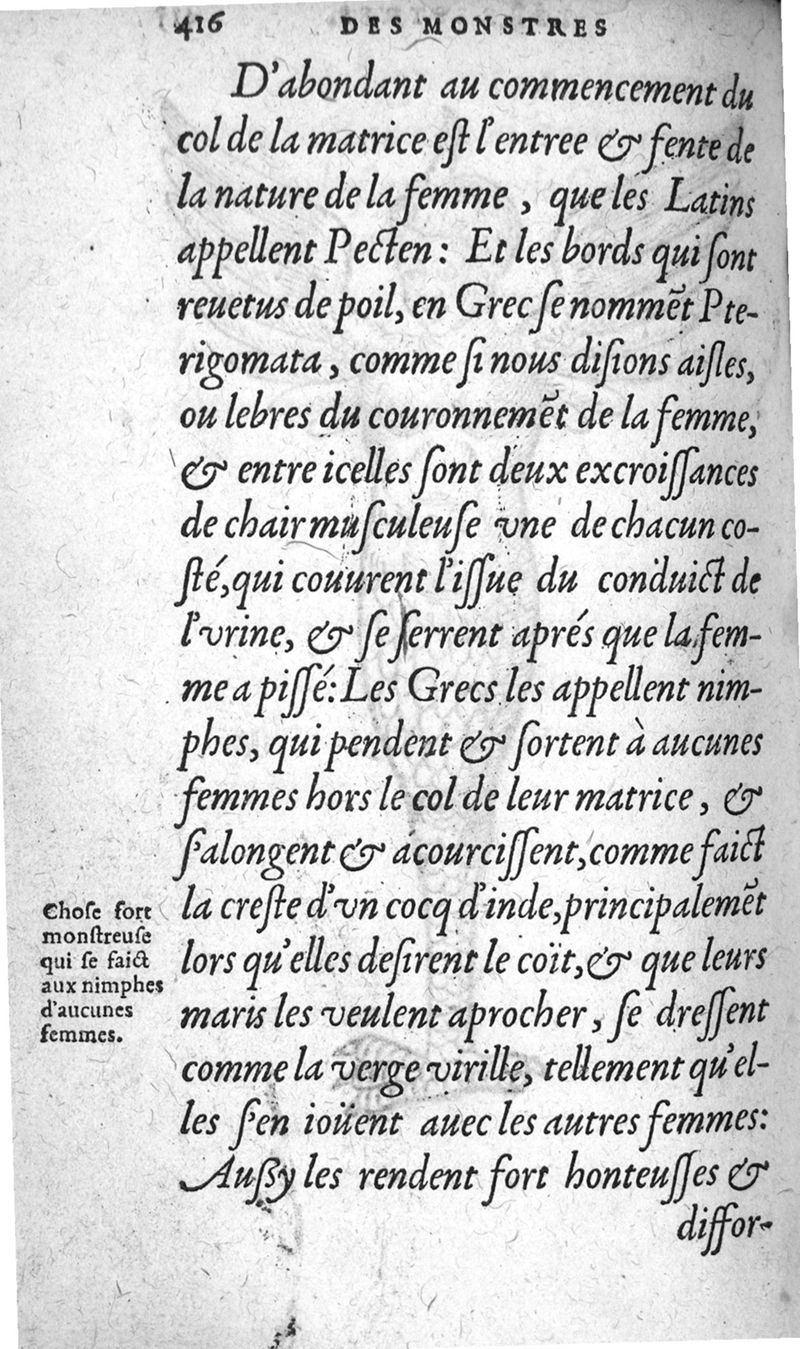 416 DES MONSTRES
D'abondant au commencement du
col de la matrice eſt l'entree & fente de
la nature de la femme, que les Latins
appellent Pecten: Et les bords qui ſont
reuetus de poil, en Grec ſe nommẽt Pte-
rigomata, comme ſi nous diſions aiſles,
ou lebres du couronnemẽt de la femme,
& entre icelles ſont deux excroiſſances
de chair muſculeuſe vne de chacun co-
ſté, qui couurent l'iſſue du conduict de
l'vrine, & ſe ſerrent aprés que la fem-
me a piſſé: Les Grecs les appellent nim-
phes, qui pendent & ſortent à aucunes
femmes hors le col de leur matrice, &
ſ'alongent & acourciſſent, comme faict
la creſte d'vn cocq d'inde, principalemẽt
lors qu'elles deſirent le coït, & que leurs
maris les veulent aprocher, ſe dreſſent
comme la verge virille, tellement qu'el-
les ſ'en ioüent auec les autres femmes:
Auſſy les rendent fort honteuſſes &
diffor-
Choſe fort
monſtreuſe
qui ſe faict
aux nimphes
d'aucunes
femmes.